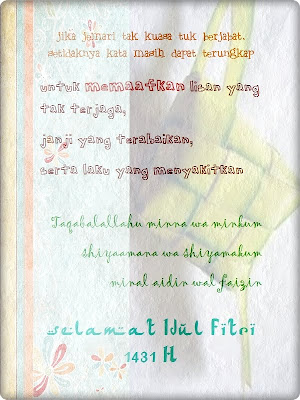 jika jemari tak kuasa tuk berjabat,
setidaknya kata masih dapat terungkap
untuk memaafkan lisan yang
tak terjaga,
janji yang terabaikan,
serta laku yang menyakitkan
Taqabalallahu minna wa minkum
shiyaamana wa shiyamakum
minal aidin wal faizin
selamat Idul Fitri
1431 H